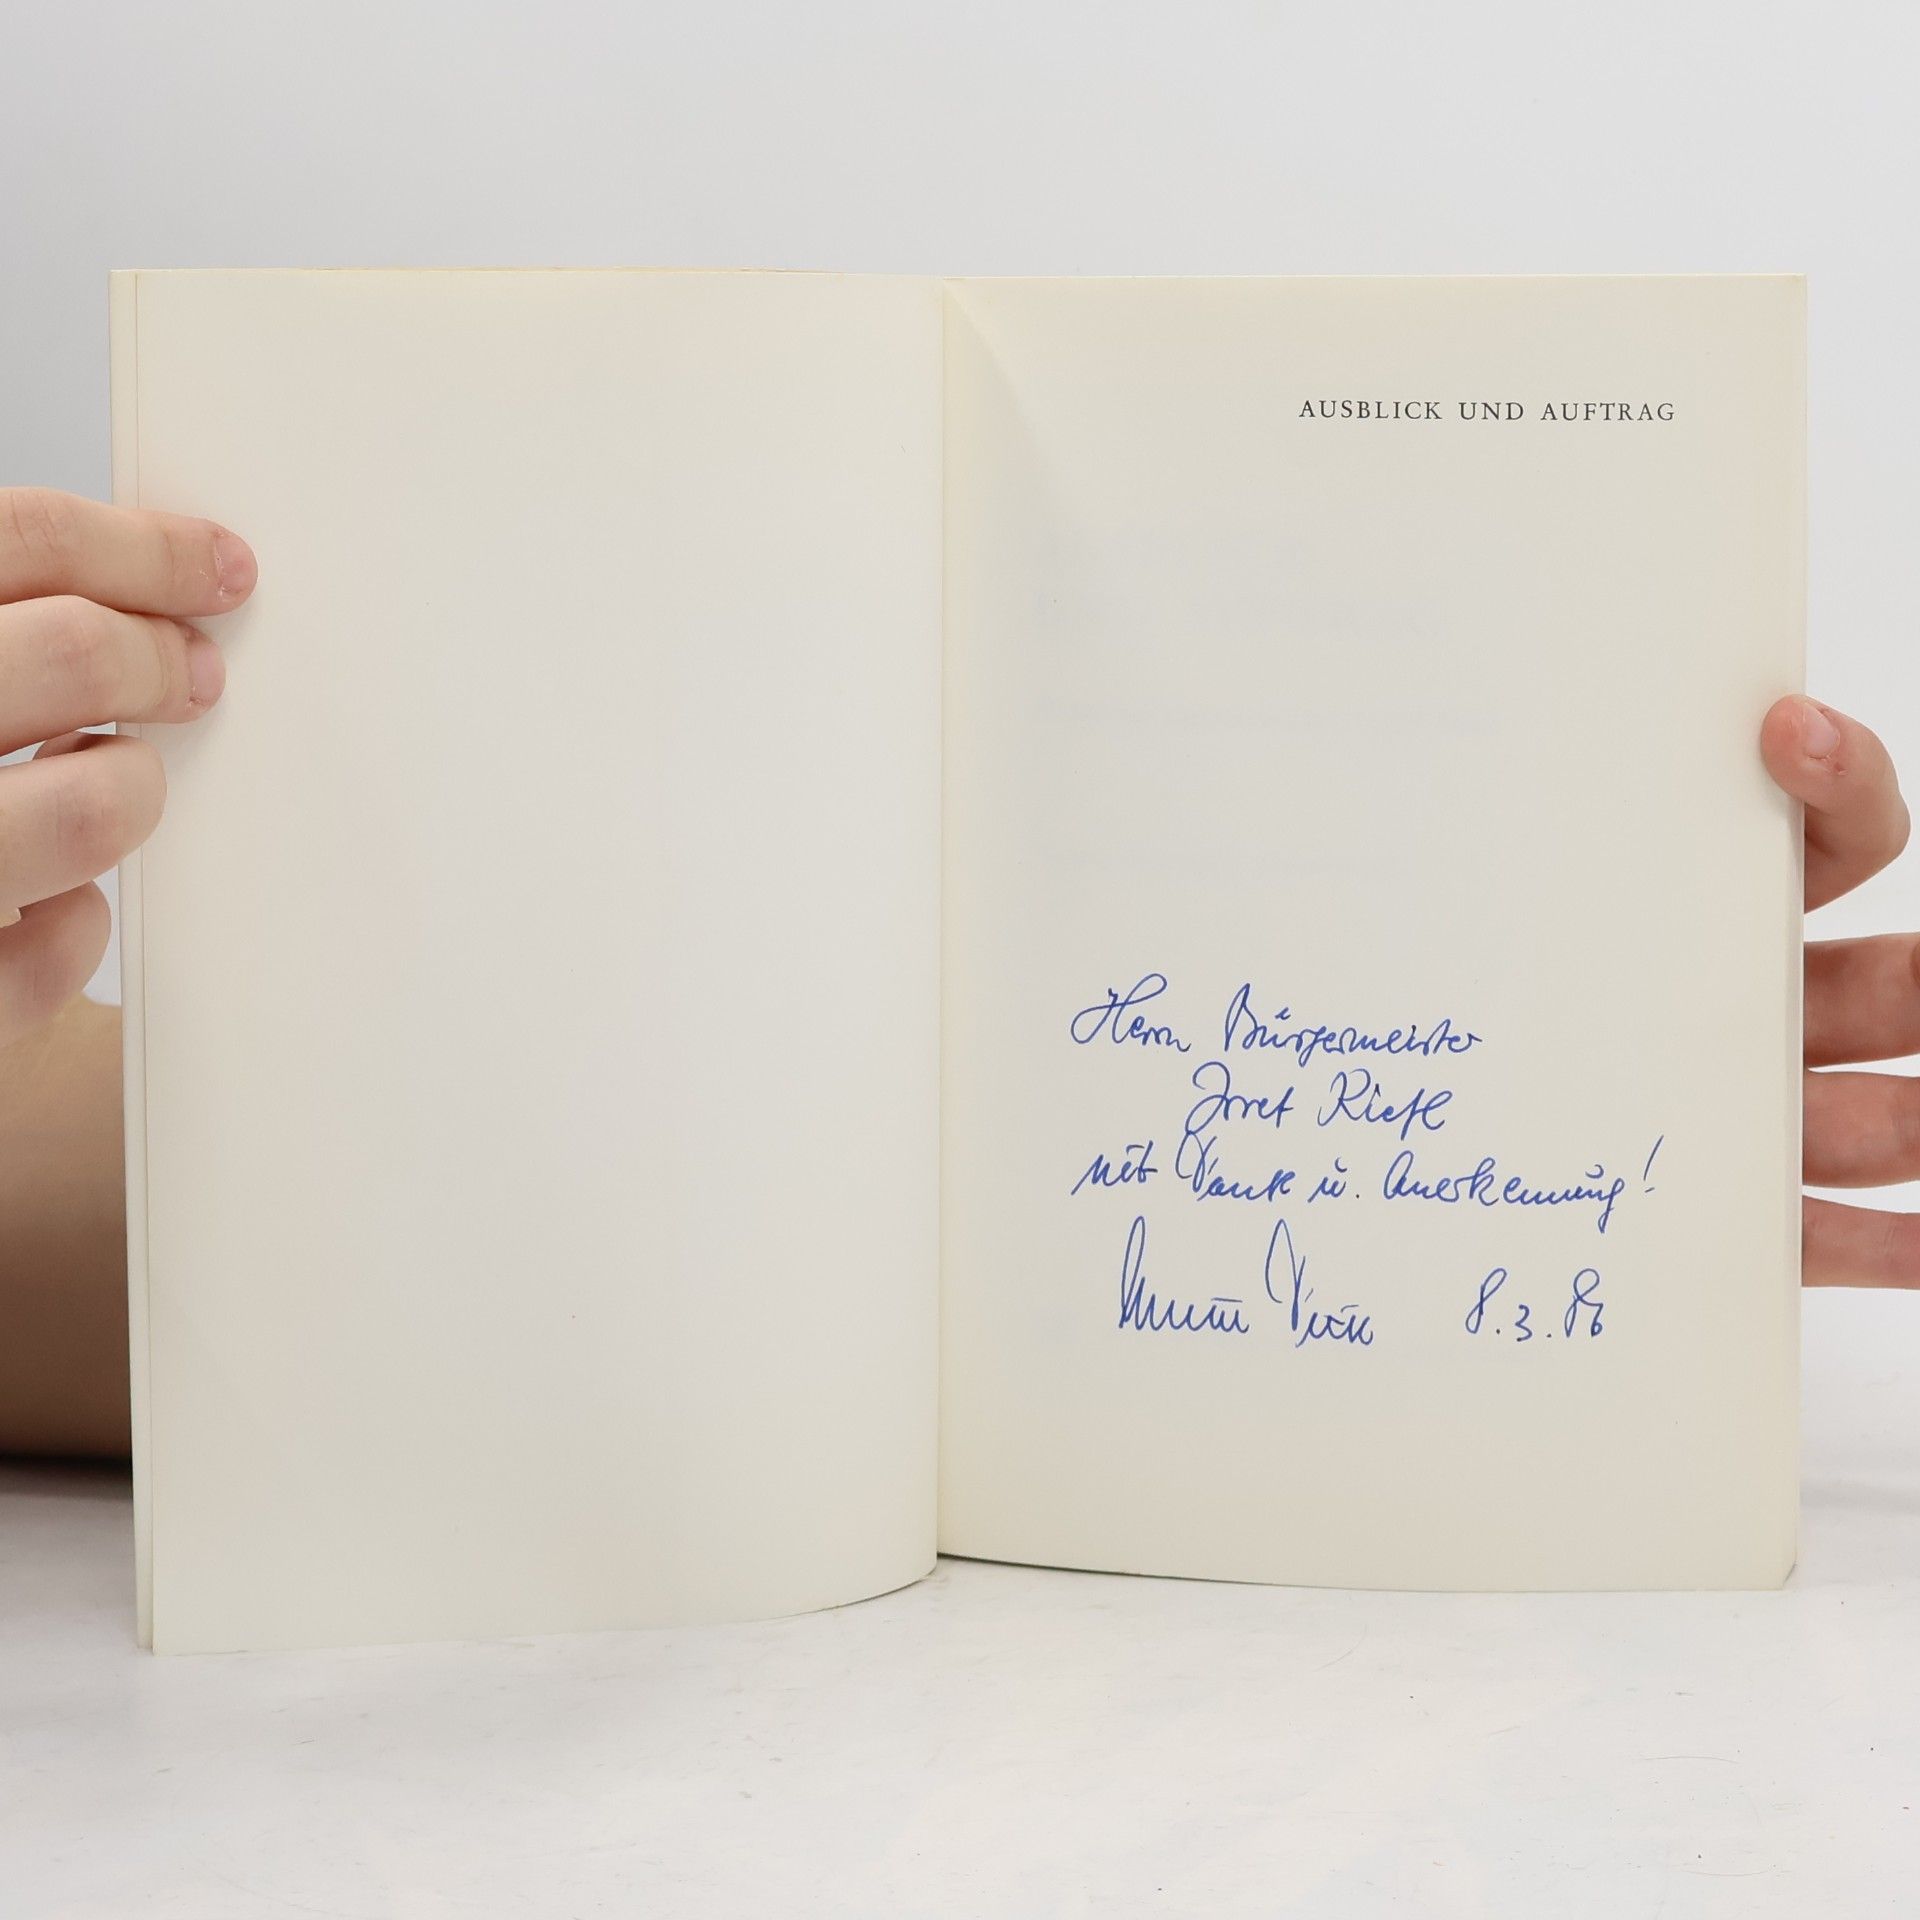 AUSBLICK UND AUFTRAG
Herrn Bürgermeister
Josef Kiefl
mit Dank u. Anerkennung!
8.3.86